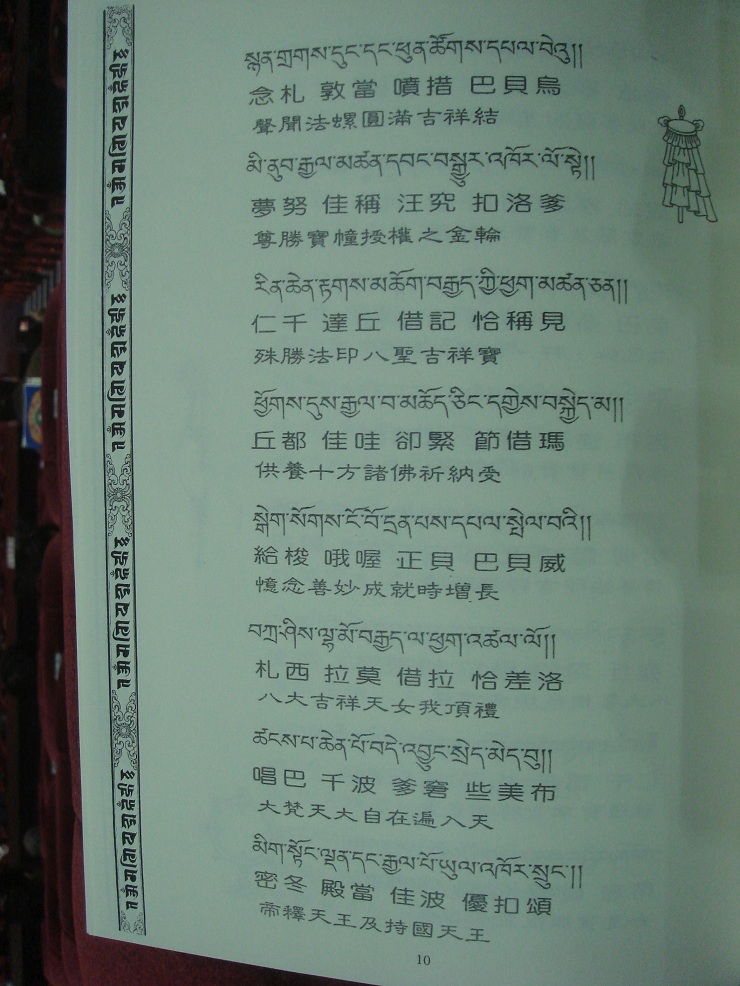 སྙན་གྲགས་དུང་དང་ཕུན་ཚོགས་དཔལ་བེའུ།།
念札 敦當 噴措 巴貝烏
聲聞法螺圓滿吉祥結
མི་ནུབ་རྒྱལ་མཚན་དབང་བསྒྱུར་འཁོར་ལོ་སྟེ།།
夢努 佳稱 汪究 扣洛爹
尊勝寶幢授權之金輪
རིན་ཆེན་རྟགས་མཆོག་བརྒྱད་ཀྱི་ཕྱག་མཚན་ཅན།།
仁千 達丘 借記 恰稱見
殊勝法印八聖吉祥寶
ཕྱོགས་དུས་རྒྱལ་བ་མཆོད་ཅིང་དགྱེས་བསྐྱེད་མ།།
丘都 佳哇 卻緊 節借瑪
供養十方諸佛祈納受
སྒེག་སོགས་ངོ་བོ་དྲན་པས་དཔལ་སྤེལ་བའི།།
給梭 哦喔 正貝 巴貝威
憶念善妙成就時增長
བཀྲ་ཤིས་ལྷ་མོ་བརྒྱད་ལ་ཕྱག་འཚལ་ལོ།།
札西 拉莫 借拉 恰差洛
八大吉祥天女我頂禮
ཚངས་པ་ཆེན་པོ་བདེ་འབྱུང་སྲེད་མེད་བུ།།
唱巴 千波 爹窘 些美布
大梵天大自在遍入天
མིག་སྟོང་ལྡན་དང་རྒྱལ་པོ་ཡུལ་འཁོར་སྲུང་།།
密冬 殿當 佳波 優扣頌
帝釋天王及持國天王
10